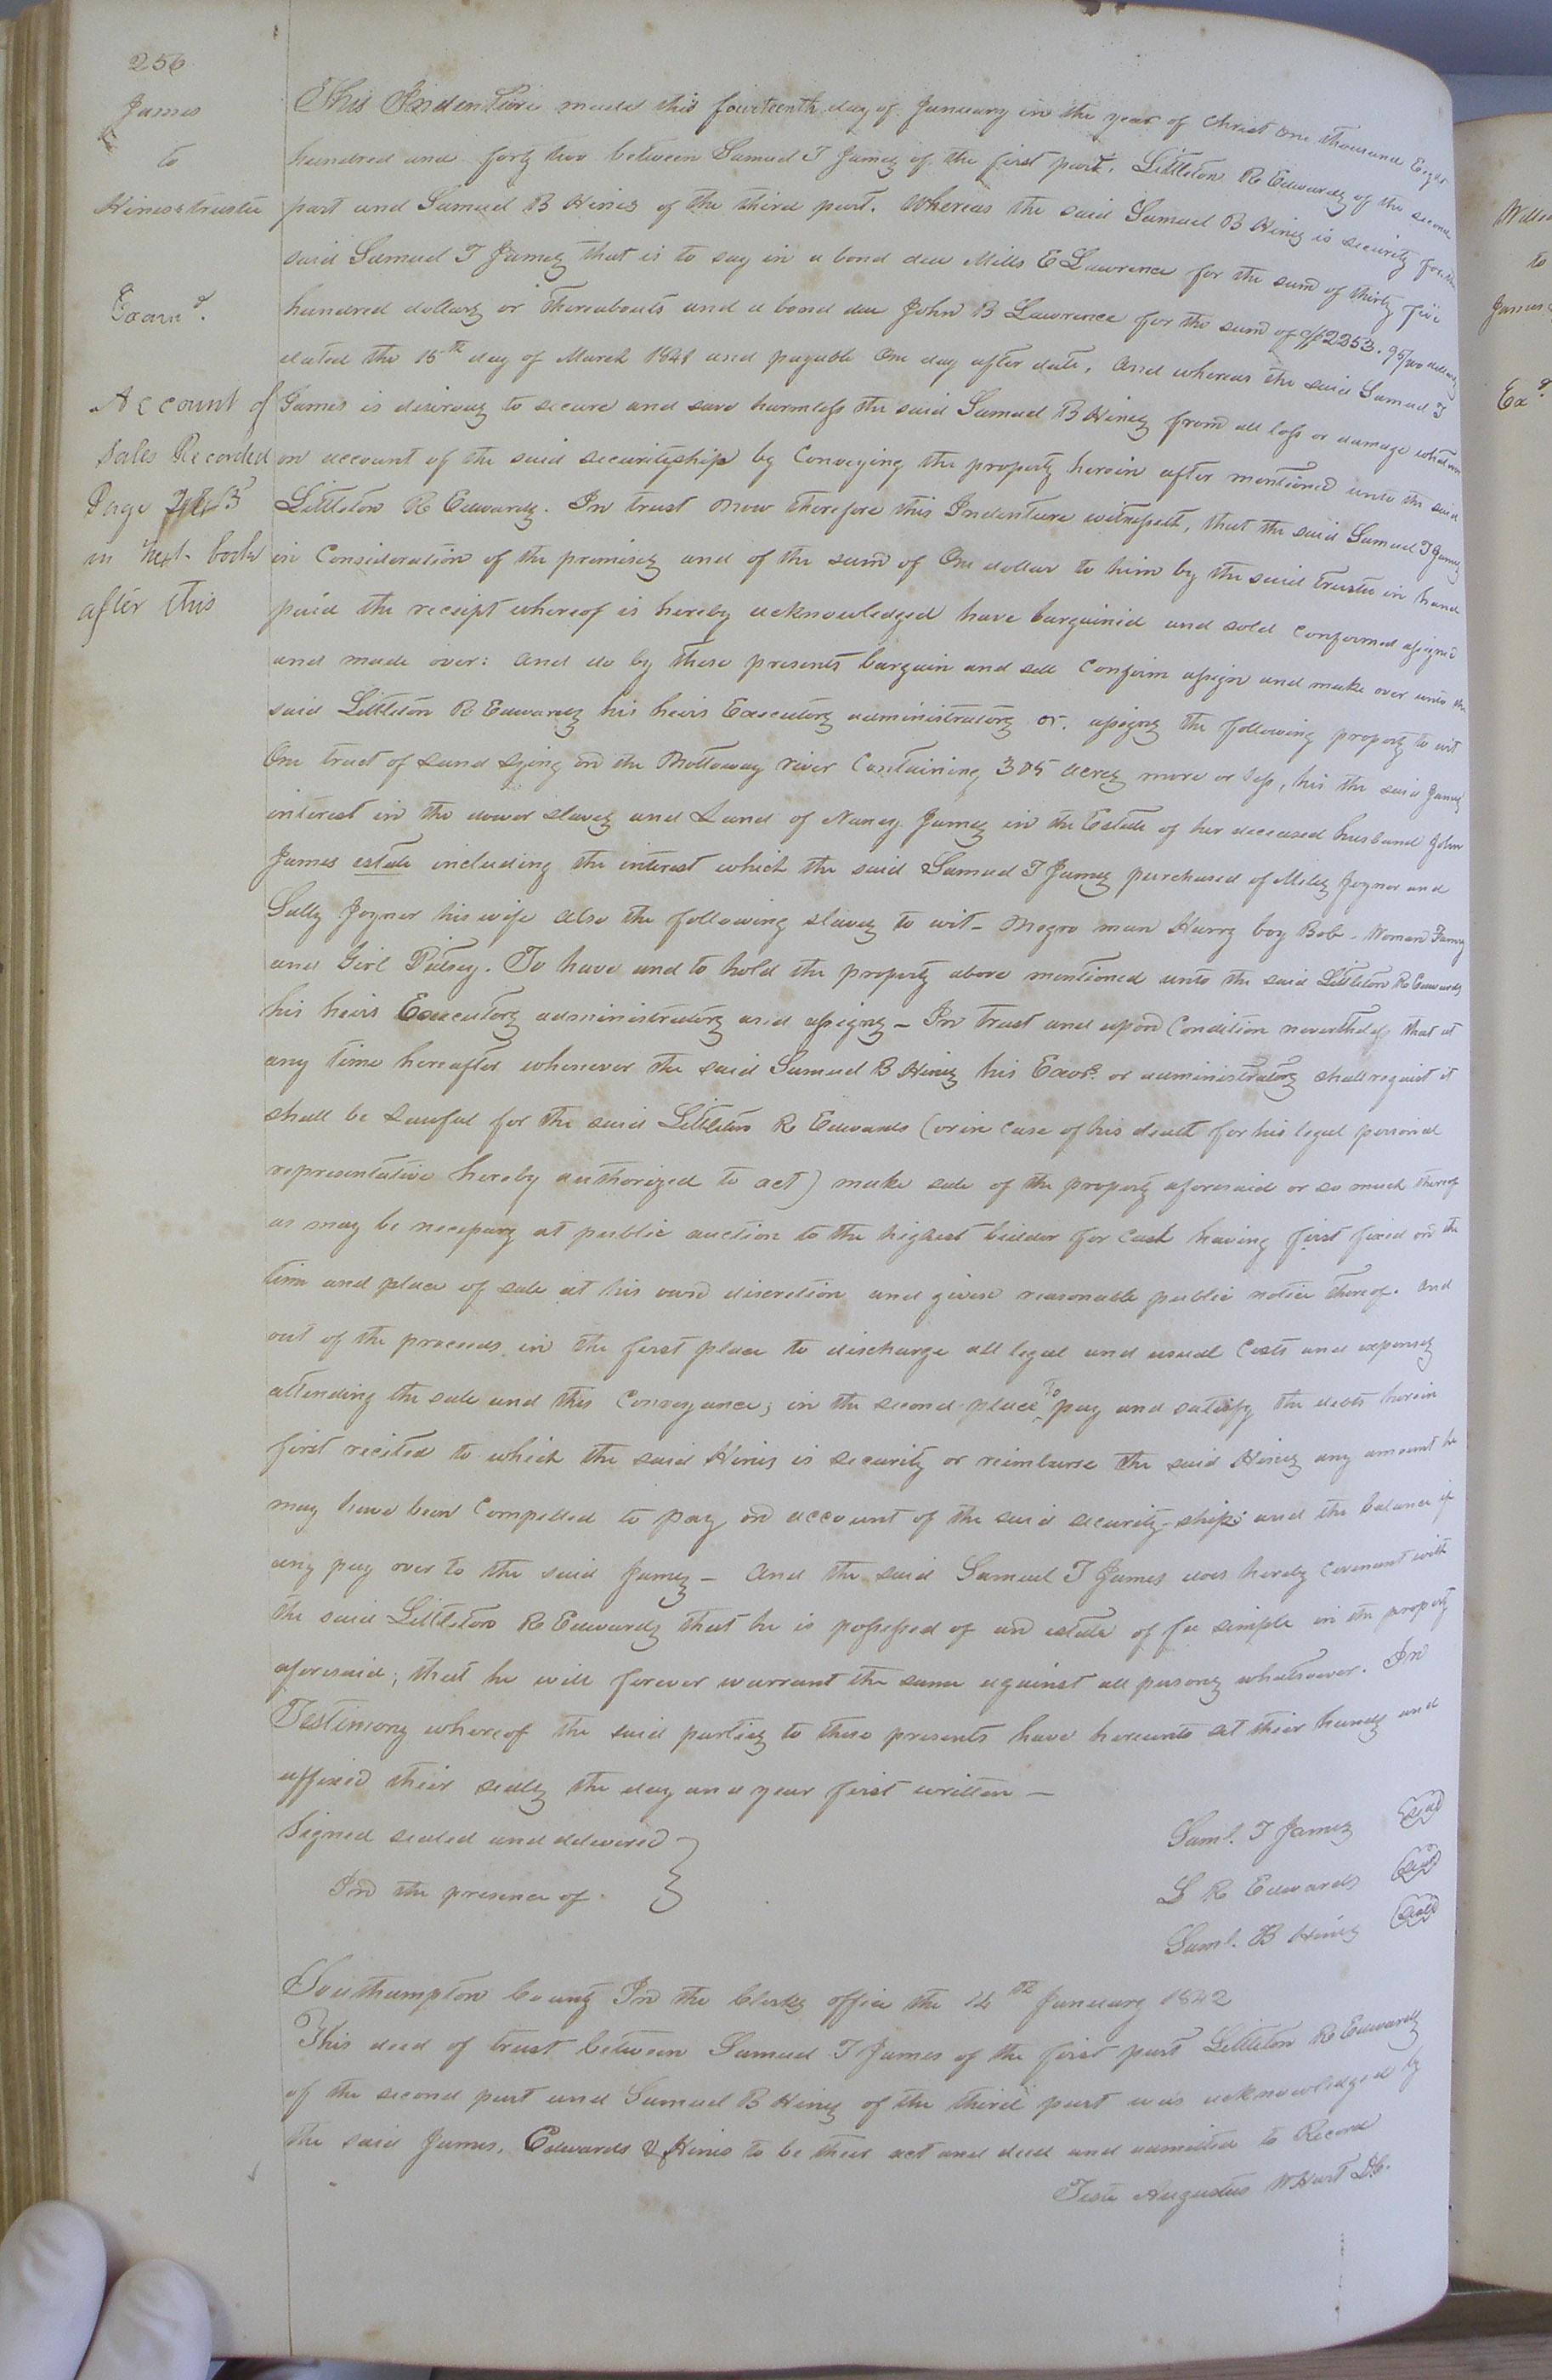 256
James
to
Hines & trustee
Exam<sup>d</sup>.
Account of
Sales Recorded
Page
in next book
after this
This Indenture made this fourteenth day of January in the year of Christ one thousand Eight
hundred and forty two between Samuel T James of the first part, Littleton R Edwards of the second
part and Samuel B Hines of the third part. Whereas the said Samuel B Hines is security for the
said Samuel T James that is to say in a bond due Mills E Lawrence for the sum of thirty five
hundred dollars or thereabouts and a bond due John B Lawrence for the sum of $2353.95/100 dollars
dated the 15<sup>th</sup> day of March 1841 and payable One day after date, And whereas the said Samuel T
James is desirous to secure and save harmless the said Samuel B Hines from all loss or damage whatever
on account of the said securityship by Conveying the property herein after mentioned unto the said
Littleton R Edwards. In trust Now therefore this Indenture witnesseth, that the said Samuel T James
in Consideration of the premises and of the sum of One dollar to him by the said trustee in hand
paid the receipt whereof is hereby acknowledged have bargained and sold confirmed assigned
and made over: and do by these presents bargain and sell Confirm assign and make over unto the
said Littleton R Edwards his heirs Executors administrators or assigns the following property to wit
One tract of Land lying on the Nottoway river Containing 305 acres more or less, his the said James
interest in the dower slaves and Land of Nancy James in the Estate of her deceased husband John
James estate including the interest which the said Samuel T James purchased of Miles Joyner and
Sally Joyner his wife also the following slaves to wit – Negro man Harry boy Bob – Woman Fanny
and Girl Patsey. To have and to hold the property above mentioned unto the said Littleton R Edwards
his heirs Executors administrators and assigns – In trust and upon Condition nevertheless that at
any time hereafter whenever the said Samuel B Hines his Exors. or administrators shall request it
shall be Lawful for the said Littleton R Edwards (or in case of his death for his legal personal
representative hereby authorized to act) make sale of the property aforesaid or so much thereof
as may be necessary at public auction to the highest bidder for Cash having first fixed on the
time and place of sale at his own discretion and given reasonable public notice thereof. And
out of the proceeds in the first place to discharge all legal and usual Costs and expenses
attending the sale and this Conveyance; in the second place to pay and satisfy the debts herein
first recited to which the said Hines is security or reimburse the said Hines any amount he
may have been Compelled to pay on account of the said security-ship: and the balance if
any pay over to the said James – And the said Samuel T James does hereby covenant with
the said Littleton R Edwards that he is possessed of an estate of fee simple in the property
aforesaid; that he will forever warrant the same against all persons whatsoever. In
Testimony whereof the said parties to these presents have hereunto set their hands and
affixed their seals the day and year first written –
Signed sealed and delivered }
In the presence of
Saml. T James (Seal)
L R Edwards (Seal)
Saml. B Hines (Seal)
Southampton County In the Clerks office the 14<sup>th</sup> January 1842
This deed of trust between Samuel T James of the first part Littleton R Edwards
of the second part and Samuel B Hines of the third part was acknowledged by
the said James, Edwards & Hines to be their act and deed and admitted to Record
Teste Augustus W Hart D.C.
to
James
Ex<sup>d</sup>